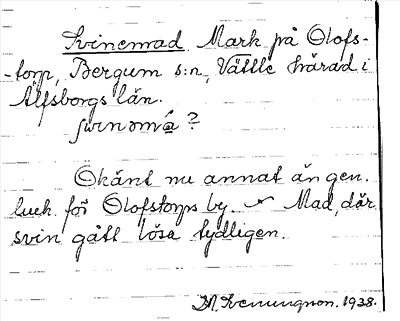 Svinemad Mark på Olofs-
-torp, Bergum s:n, Vättle härad i
Älfsborgs län.
Okänt nu annat än gen.
luck. för Olofstorps by. Mad, där
svin gått lösa tydligen.
1938.